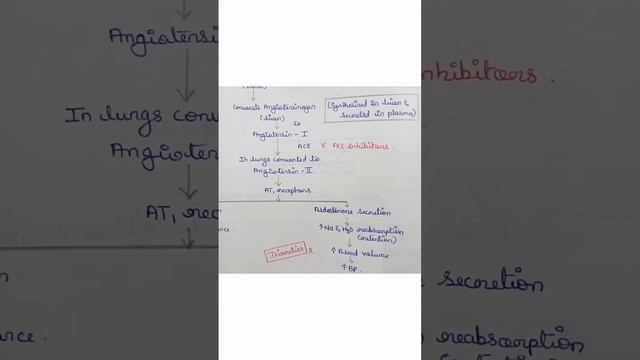 Angiotensi
In lungs conve
Angioten
AT₁ rec
ance.
(liver)
Converts Angiotensinogen
(liver)
to
(Synthesized in liver &
secreted in plasma)
Angiotensin - I
ACE X ACE inhibitors.
In lungs converted to
Angiotensin - II
AT₁ receptors
Aldosterone secretion
↑ Na & H₂O reabsorption
(retention)
ance.
Diuretics X
↑ Blood volume
↑ BP.
nhibitors.
secretion
reabsorption